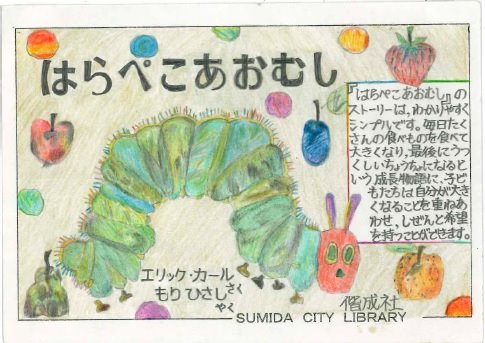 はらぺこあおむし
『はらぺこあおむし』の
ストーリーは，わかりやすく
シンプルです。毎日たく
さんの食べものを食べて
大きくなり，最後にうつ
くしいちょうちょになると
いう成長物語に、子ど
もたちは自分が大き
くなることを重ねあ
わせ，しぜんと希望
を持つことができます。
エリック・カール さく
もりひさし やく
偕成社
SUMIDA CITY LIBRARY